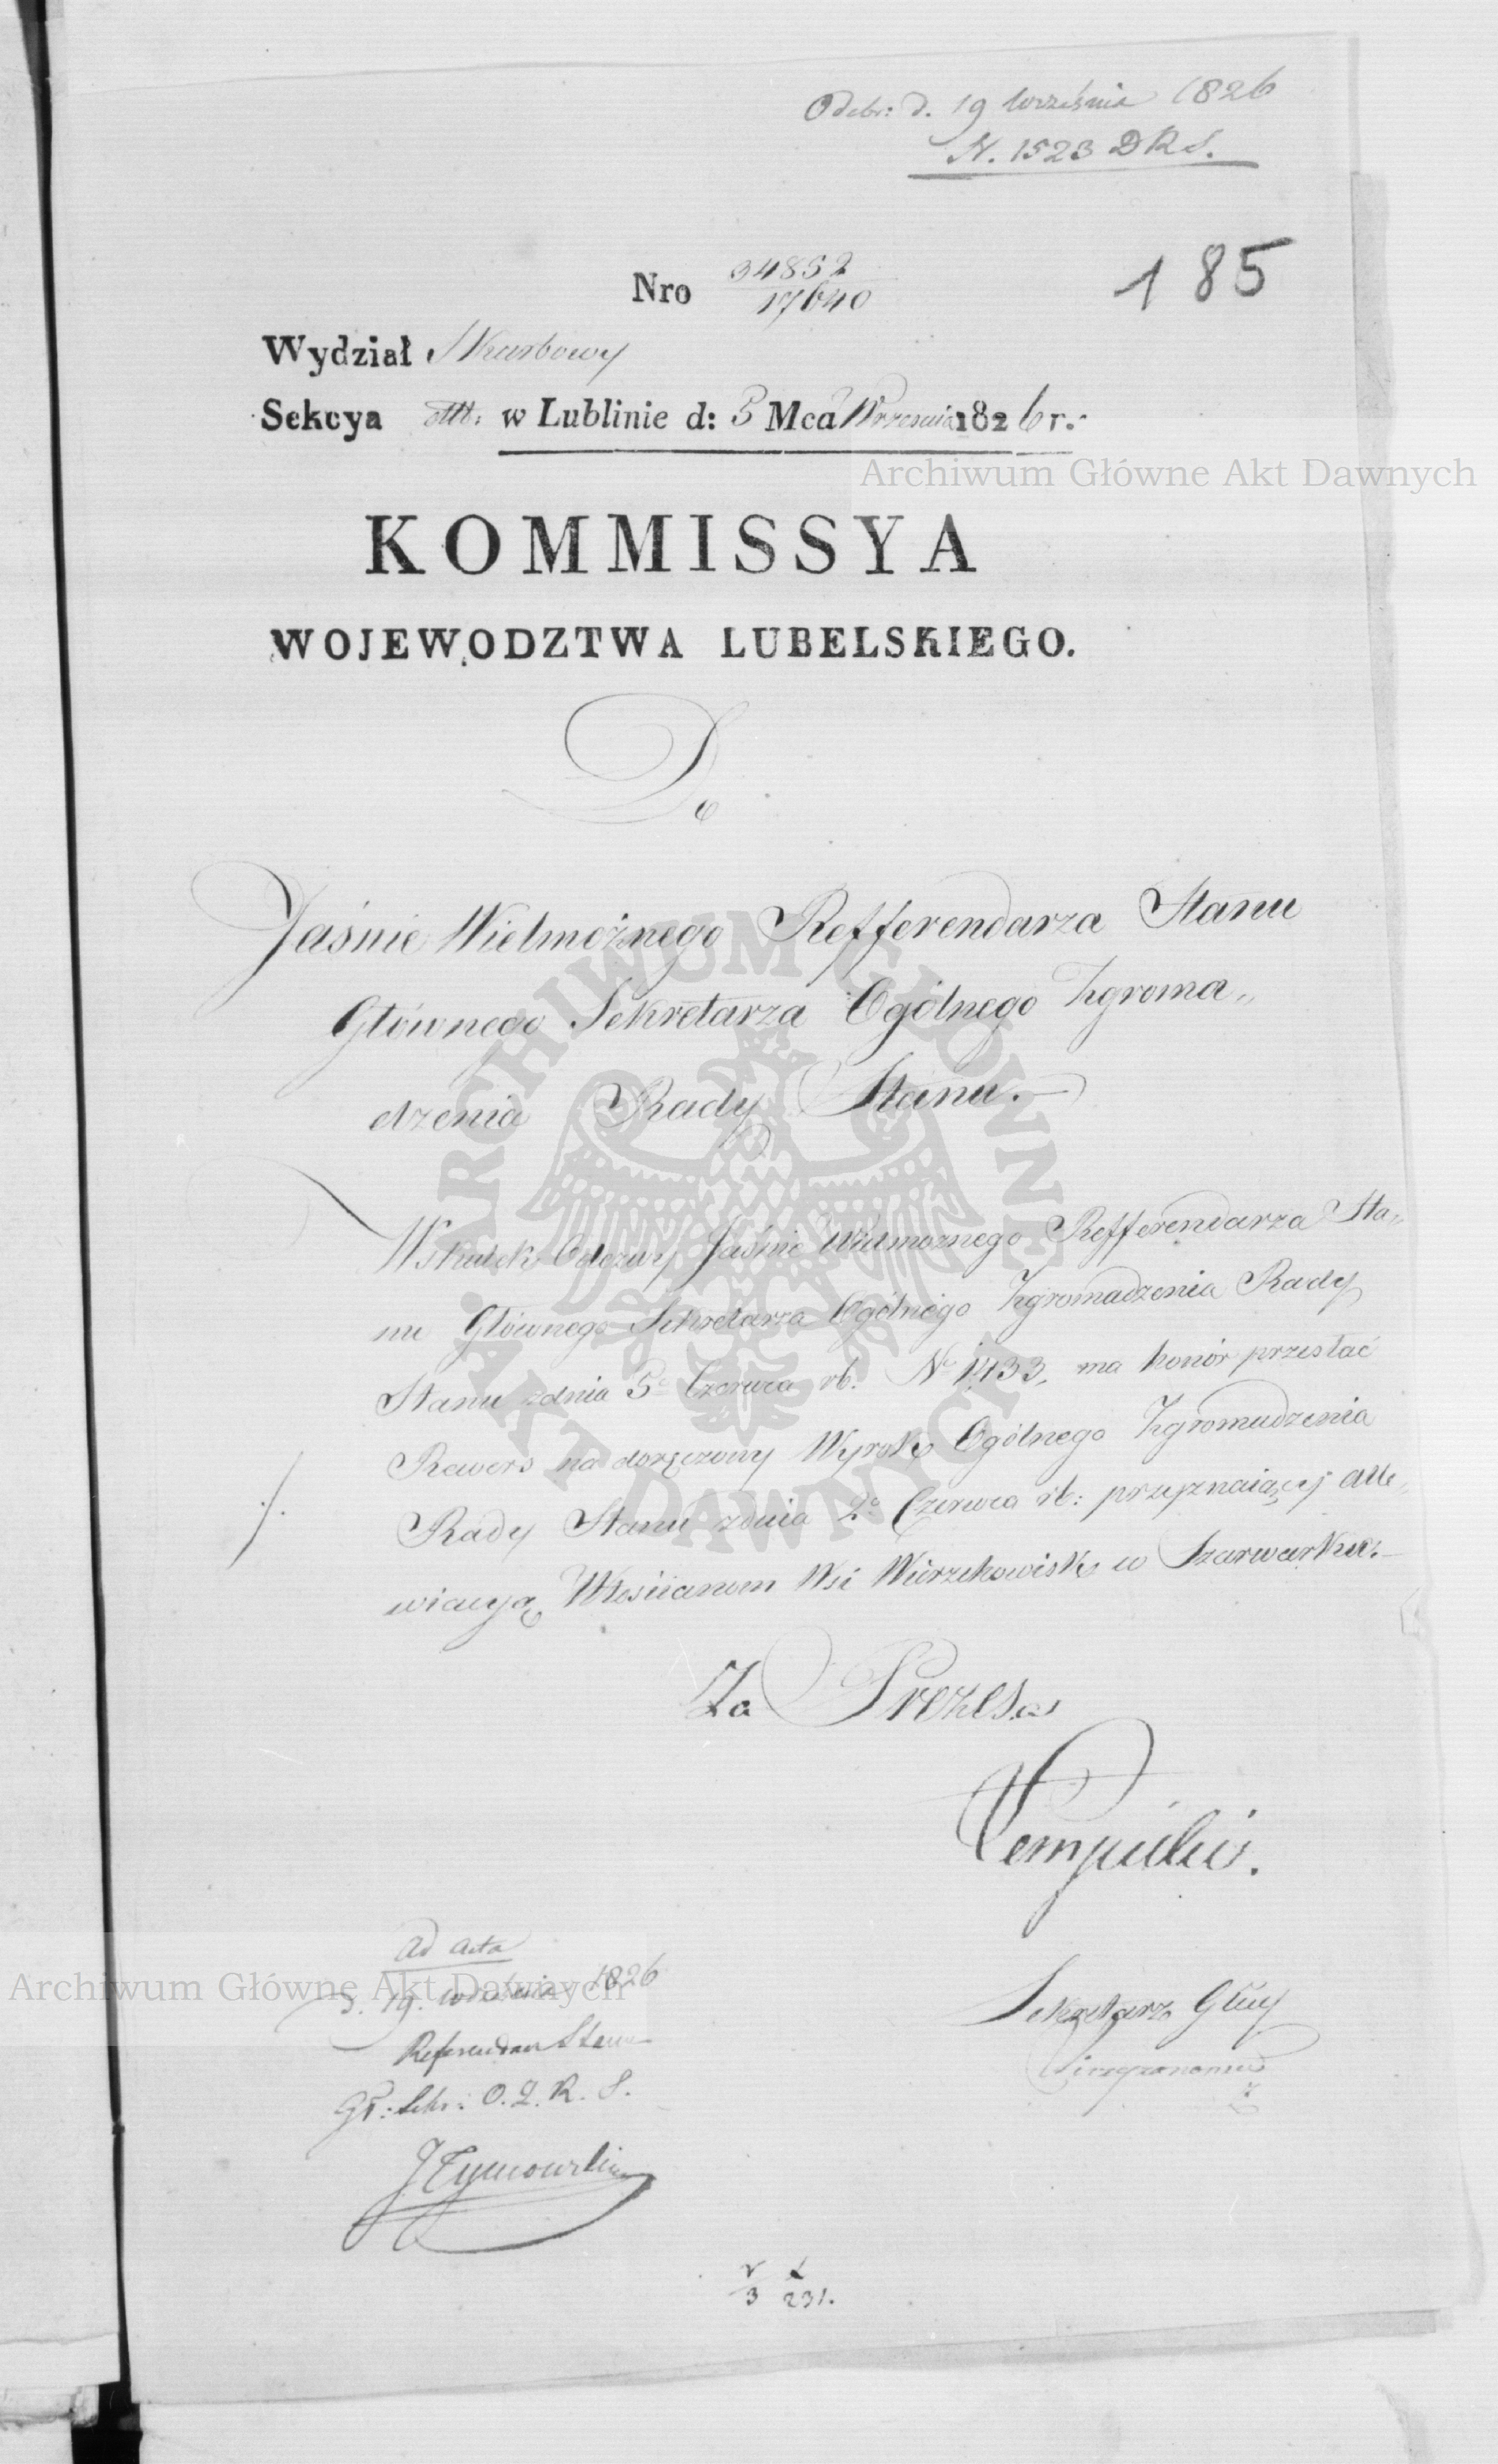 Odebr: d. 19 Września 1826
N. 1523 D R S.
185
Nro 34852
17640
Wydział Skarbowy
Sekcya w Lublinie d: 5 Mca Września 1826 r.
Archiwum Główne Akt Dawnych
KOMMISSYA
WOJEWODZTWA LUBELSKIEGO.
Do
Jaśnie Wielmożnego Refferendarza Stanu
Głównego Sekretarza Ogólnego Zgroma„
dzenia Rady Stanu.
ARCHIWUM GŁÓWNE AKT DAWNYCH
Wskutek Odezwy Jaśnie Wielmożnego Refferendarza Sta„
nu Głównego Sekretarza Ogólnego Zgromadzenia Rady
Stanu zdnia 5o Czerwca rb. No 1,133, ma honór przesłać
Rewers na doręczony Wyrok Ogólnego Zgromadzenia
Rady Stanu zdnia 2o Czerwca rb: przyznaiący Alle„
wiacyą Włościanom Wsi w Szarwarku.
Za Prezesa
Ad Acta
d. 19. Września 1826
Archiwum Główne Akt Dawnych
Referendarz Stanu
Gł: Sekr: O. Z. R. S.
JTymowski
Sekretarz Głny
3 231.